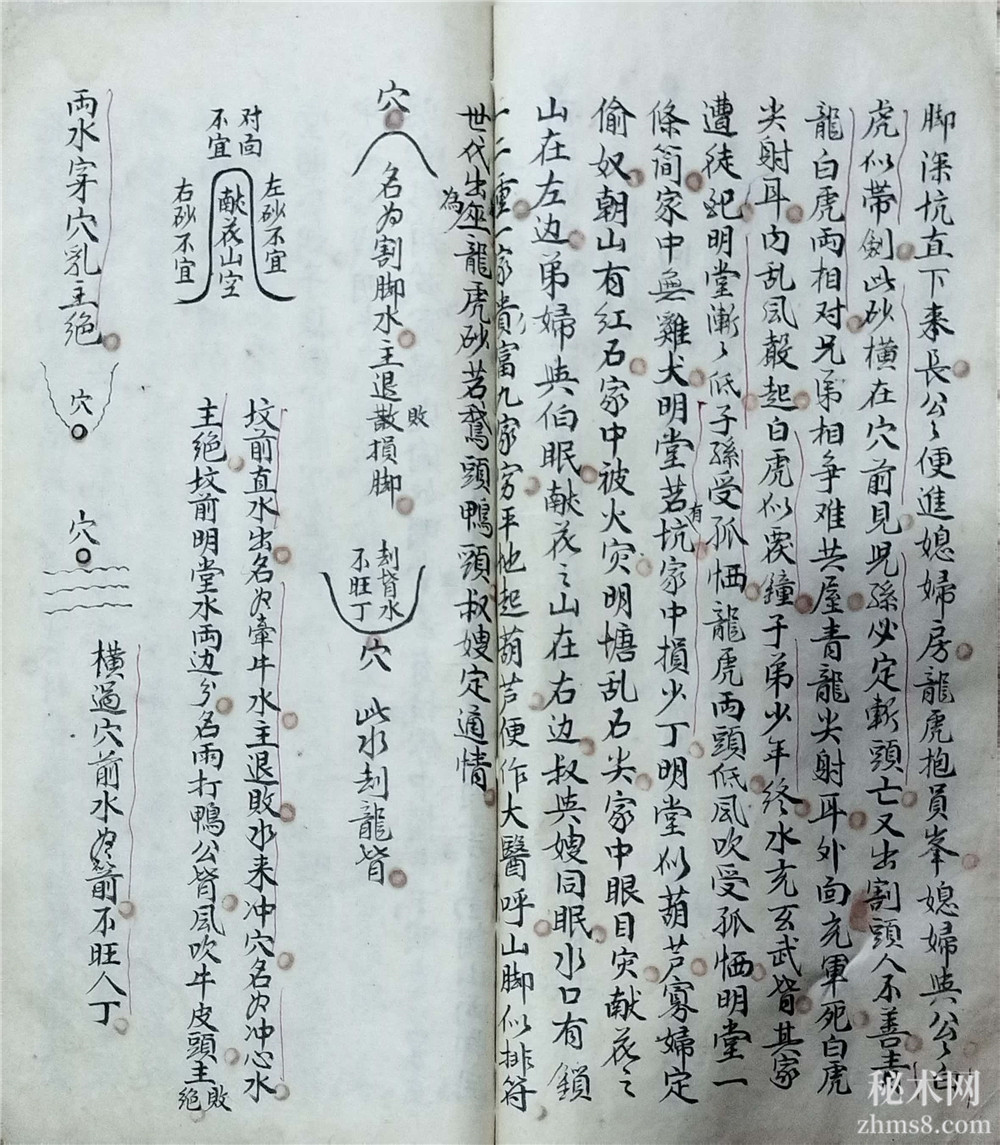 脚深坑直下来長公々便進媳婦房龍虎抱員峯媳婦與公々白
虎似帶劍此砂横在穴前見児孫必定斬頭亡又出割頭人不善青
龍白虎両相对兄弟相争难共屋青龍尖射耳外面充軍死白虎
尖射耳内乱風声起白虎似覆鐘子弟少年终水充玄武背其家
遭徒配明堂漸々低子孫受孤恓龍虎両頭低風吹受孤恓明堂一
條简家中無雞犬明堂若有坑家中損少丁明堂似葫芦寡婦定
偷奴朝山有红石家中被火灾明塘乱石尖家中眼目灾献花之
山在左边弟婦與伯眠献花之山在右边叔與嫂同眠水口有鎖
一二重一家貴富九家穷平地起葫芦便作大醫呼山脚似排符
世代出為巫龍虎砂若鵞頭鴨頭叔嫂定通情
穴
名为割脚水主退散敗損脚
刦背水
不旺丁
穴
此水刦龍背
对面
不宜
左砂不宜
献花山穴
右砂不宜
坟前直水出名为牽牛水主退敗水来冲穴名为冲心水
主绝坟前明堂水両边分名雨打鴨公背風吹牛皮頭主敗绝
両水穿穴乳主绝
穴
穴
横過穴前水为箭不旺人丁
秘术网
zhms8.com